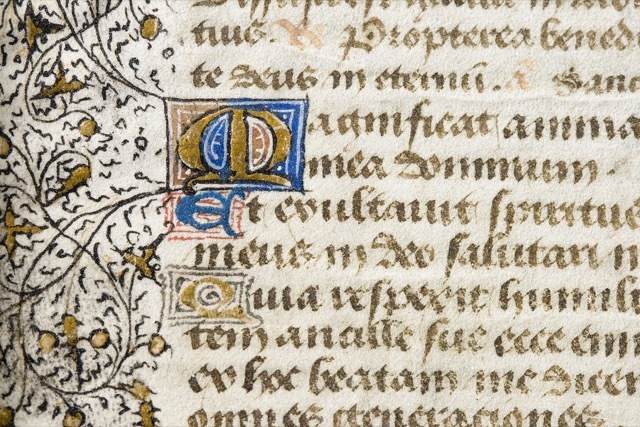 tuis. Propterea bened
te deus in eternū. a Sanc
Magnificat anima
mea dominum.
Et exultavit spiritus
meus in deo salutari m
Quia respexit humili
tem ancille sue ecce eni
ex hoc beatam me dicen
omnes generationes.